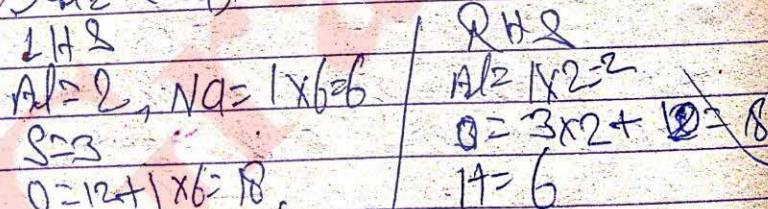 LHS
Al = 2, Na = 1x6=6
S=3
O=12+1x6=18.
RHS
Al= 1x2=2
O = 3x2+12=18
H= 6